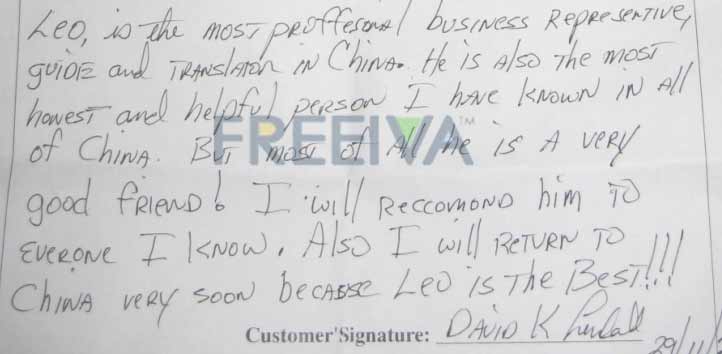 Leo, is the most proffesonal business Representive,
guide and Translator in China. He is also the most
honest and helpful person I have known in all
of China. But most of all he is a very
FREEIVA™
good friend! I will reccomond him to
everone I know. Also I will return to
China very soon because Leo is the Best!!!
Customer'Signature: David K
29/11/